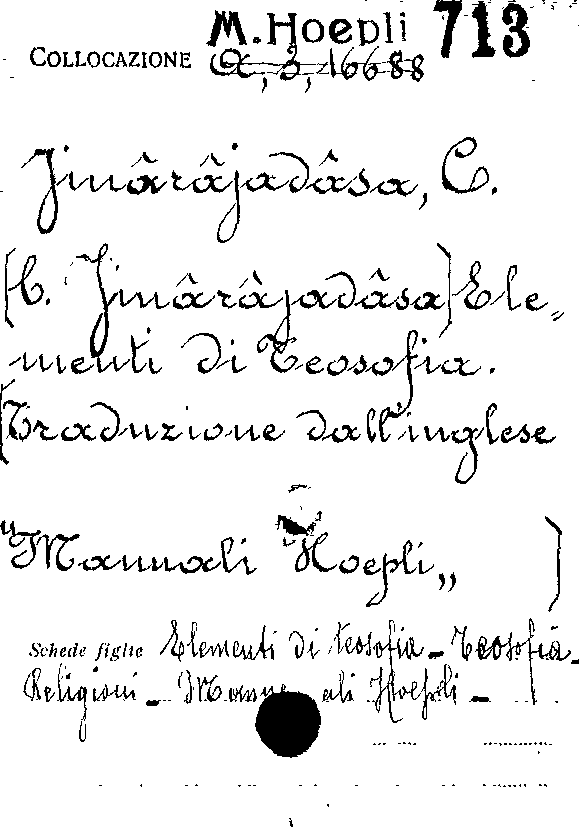 M. Hoepli 713
COLLOCAZIONE A, 3, 16688
Jinârâjadâsa, C.
[C. Jinârâjadâsa] Ele„
menti di Teosofia.
[Traduzione dall'inglese
"Manuali Hoepli„ ]
Schede figlie Elementi di teosofia - Teosofia -
Religioni - Manuali Hoepli -